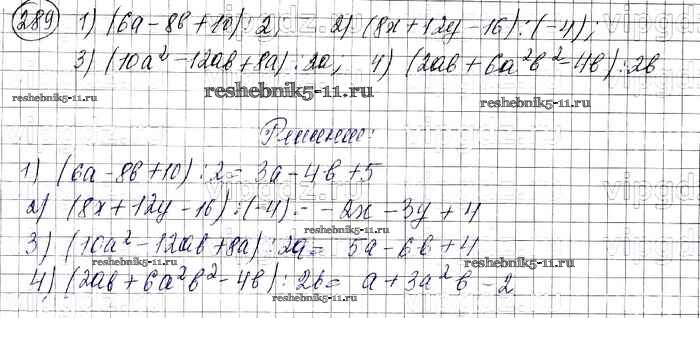 289 1) (6a-8b+10):2, 2) (8x+12y-16):(-4);
3) (10a²-12ab+8a):2a, 4) (2ab+6a²b²-4b):2b
reshebnik5-11.ru reshebnik5-11.ru reshebnik5-11.ru
Решение:
1) (6a-8b+10):2= 3a-4b+5
vipgdz.ru vipgdz
2) (8x+12y-16):(-4)= -2x-3y+4
3) (10a²-12ab+8a):2a= 5a-6b+4
reshebnik5-11.ru
4) (2ab+6a²b²-4b):2b= a+3a²b-2
reshebnik5-11.ru reshebnik5-11.ru